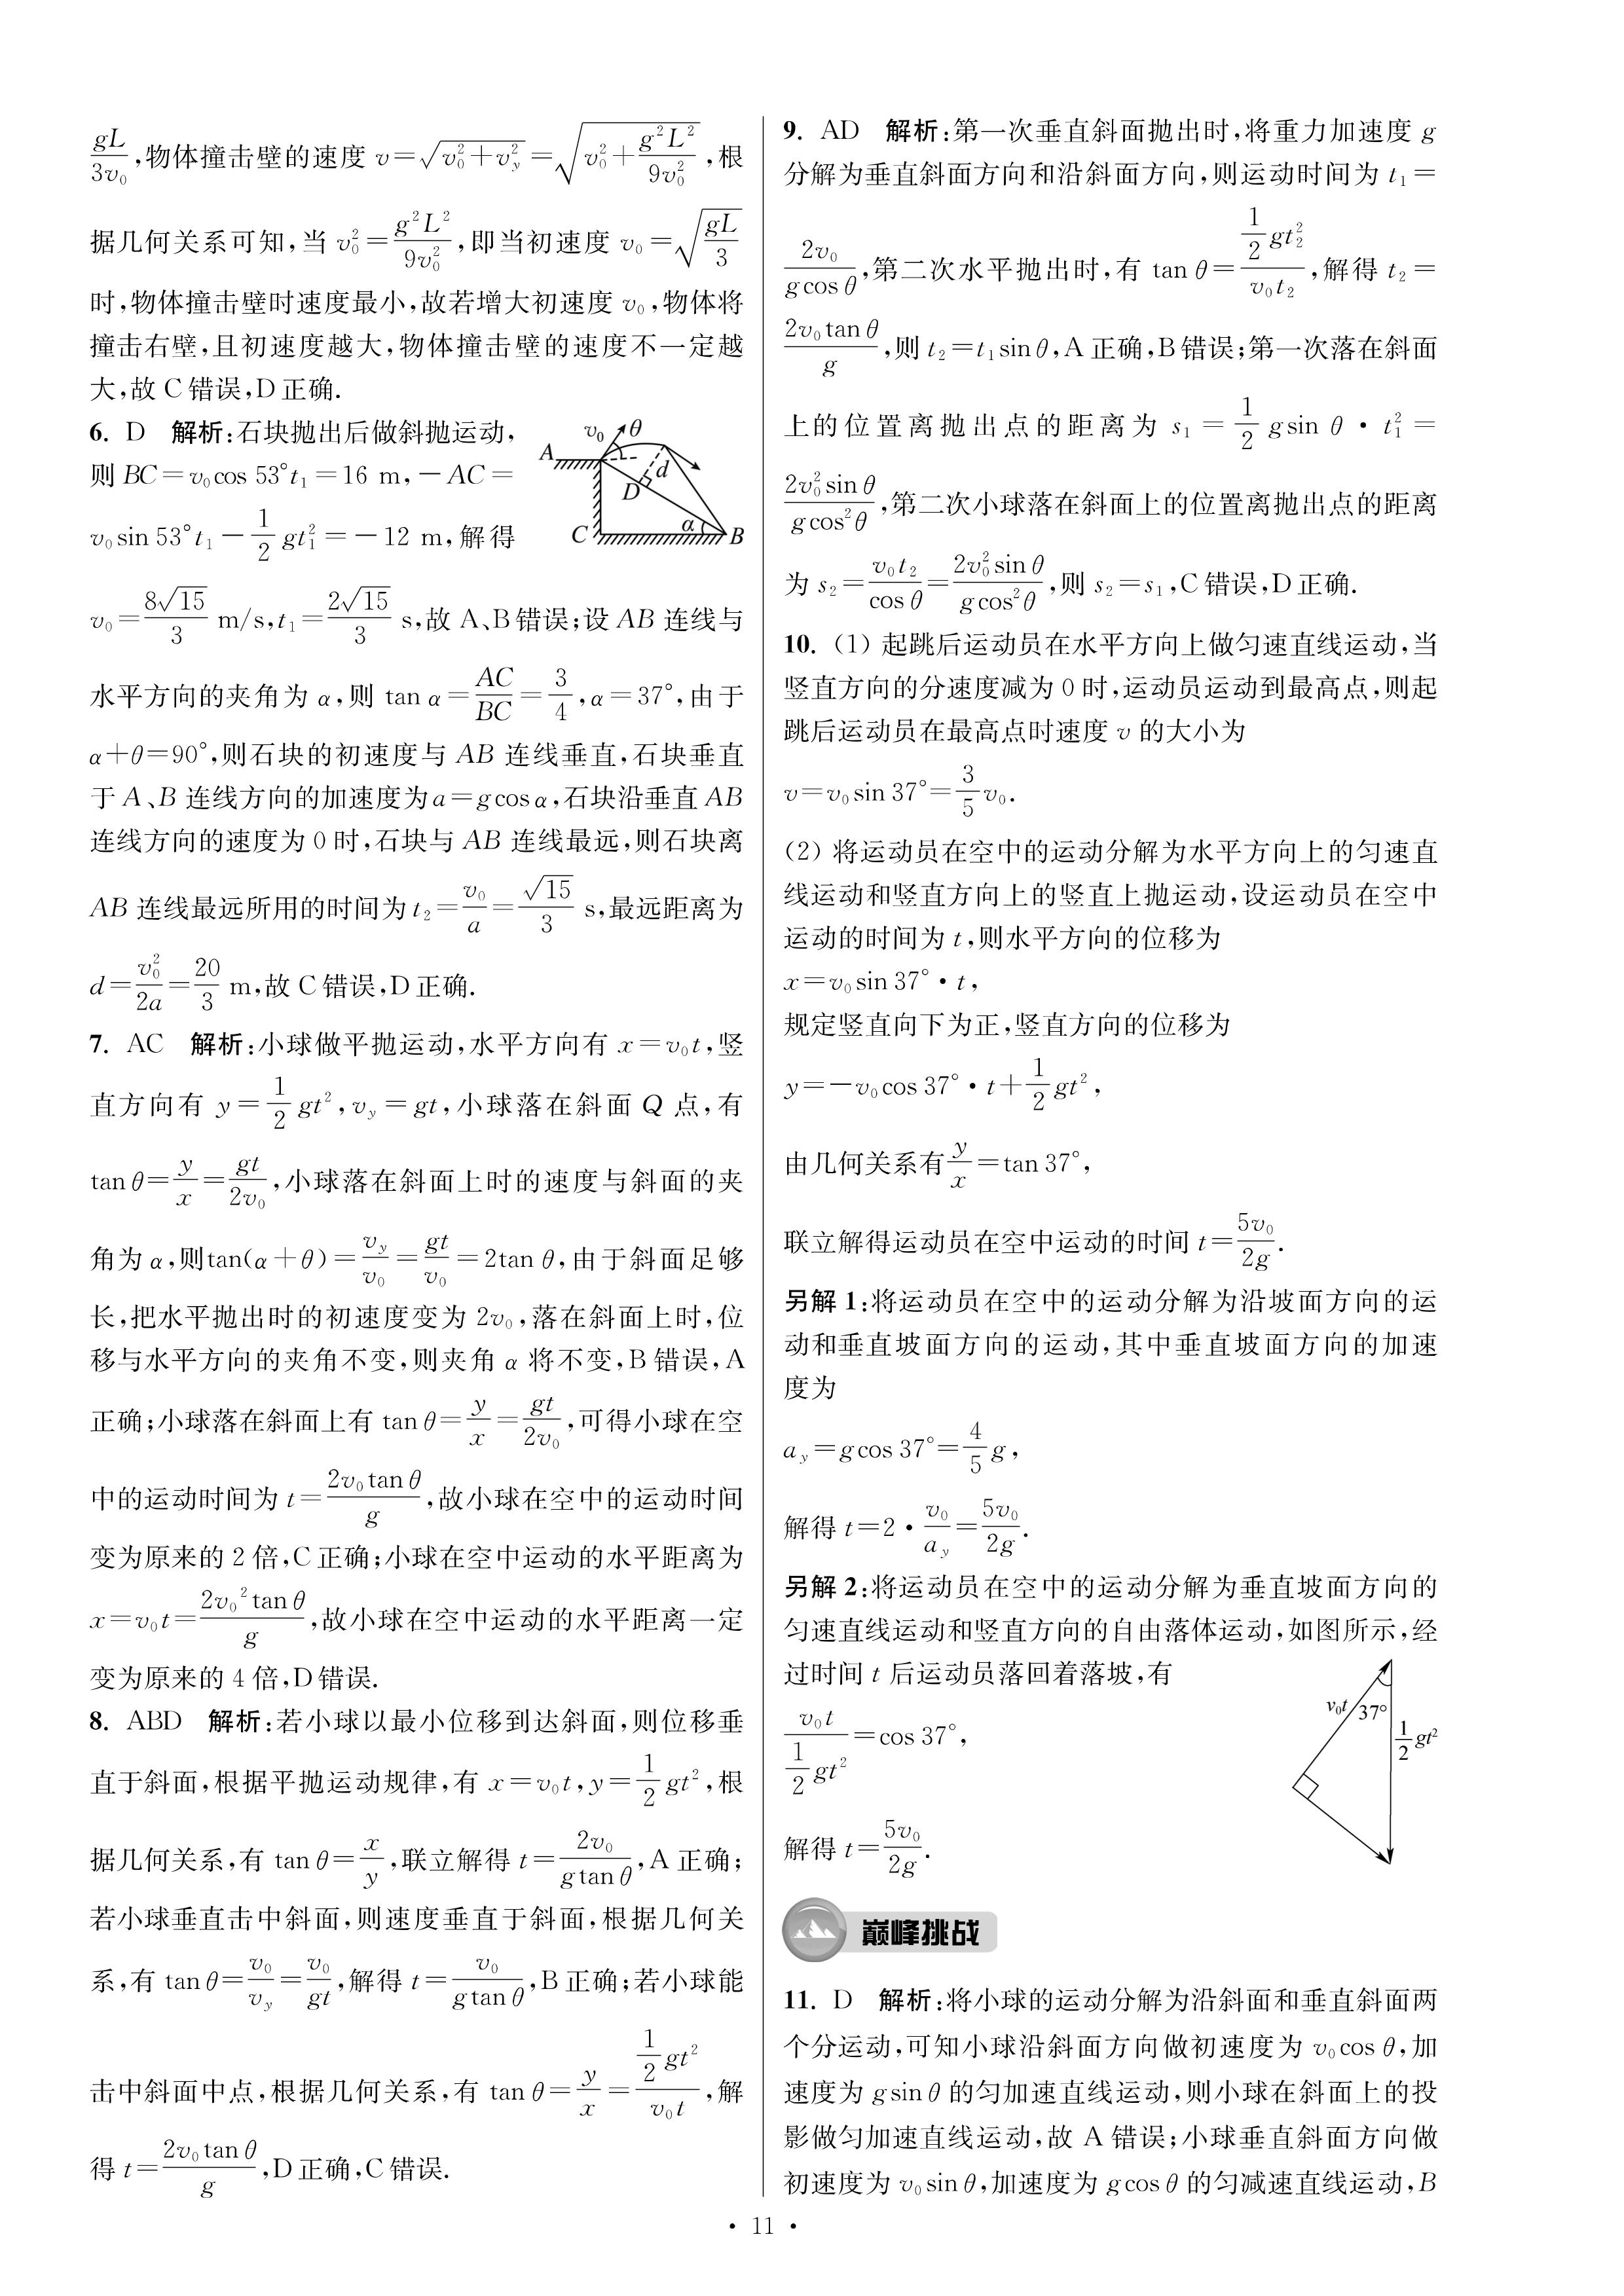 gL/(3v₀),物体撞击壁的速度 v=√(v₀²+v_y²)=√(v₀²+g²L²/(9v₀²)),根
据几何关系可知,当 v₀²=g²L²/(9v₀²),即当初速度 v₀=√(gL/3)
时,物体撞击壁时速度最小,故若增大初速度 v₀,物体将
撞击右壁,且初速度越大,物体撞击壁的速度不一定越
大,故 C 错误,D 正确.
6. D 解析:石块抛出后做斜抛运动,
则 BC=v₀cos 53°t₁=16 m,-AC=
v₀sin 53°t₁-1/2 gt₁²=-12 m,解得
A v₀ θ d D C α B
v₀=8√15/3 m/s,t₁=2√15/3 s,故 A、B 错误;设 AB 连线与
水平方向的夹角为 α,则 tan α=AC/BC=3/4,α=37°,由于
α+θ=90°,则石块的初速度与 AB 连线垂直,石块垂直
于 A、B 连线方向的加速度为 a=gcos α,石块沿垂直 AB
连线方向的速度为 0 时,石块与 AB 连线最远,则石块离
AB 连线最远所用的时间为 t₂=v₀/a=√15/3 s,最远距离为
d=v₀²/(2a)=20/3 m,故 C 错误,D 正确.
7. AC 解析:小球做平抛运动,水平方向有 x=v₀t,竖
直方向有 y=1/2 gt²,v_y=gt,小球落在斜面 Q 点,有
tan θ=y/x=gt/(2v₀),小球落在斜面上时的速度与斜面的夹
角为 α,则tan(α+θ)=v_y/v₀=gt/v₀=2tan θ,由于斜面足够
长,把水平抛出时的初速度变为 2v₀,落在斜面上时,位
移与水平方向的夹角不变,则夹角 α 将不变,B 错误,A
正确;小球落在斜面上有 tan θ=y/x=gt/(2v₀),可得小球在空
中的运动时间为 t=2v₀tan θ/g,故小球在空中的运动时间
变为原来的 2 倍,C 正确;小球在空中运动的水平距离为
x=v₀t=2v₀²tan θ/g,故小球在空中运动的水平距离一定
变为原来的 4 倍,D 错误.
8. ABD 解析:若小球以最小位移到达斜面,则位移垂
直于斜面,根据平抛运动规律,有 x=v₀t,y=1/2 gt²,根
据几何关系,有 tan θ=x/y,联立解得 t=2v₀/(gtan θ),A 正确;
若小球垂直击中斜面,则速度垂直于斜面,根据几何关
系,有 tan θ=v₀/v_y=v₀/(gt),解得 t=v₀/(gtan θ),B 正确;若小球能
击中斜面中点,根据几何关系,有 tan θ=y/x=(1/2 gt²)/(v₀t),解
得 t=2v₀tan θ/g,D 正确,C 错误.
9. AD 解析:第一次垂直斜面抛出时,将重力加速度 g
分解为垂直斜面方向和沿斜面方向,则运动时间为 t₁=
2v₀/(gcos θ),第二次水平抛出时,有 tan θ=(1/2 gt₂²)/(v₀t₂),解得 t₂=
2v₀tan θ/g,则 t₂=t₁sin θ,A 正确,B 错误;第一次落在斜面
上的位置离抛出点的距离为 s₁=1/2 gsin θ·t₁²=
2v₀²sin θ/(gcos²θ),第二次小球落在斜面上的位置离抛出点的距离
为 s₂=v₀t₂/cos θ=2v₀²sin θ/(gcos²θ),则 s₂=s₁,C 错误,D 正确.
10. (1) 起跳后运动员在水平方向上做匀速直线运动,当
竖直方向的分速度减为 0 时,运动员运动到最高点,则起
跳后运动员在最高点时速度 v 的大小为
v=v₀sin 37°=3/5 v₀.
(2) 将运动员在空中的运动分解为水平方向上的匀速直
线运动和竖直方向上的竖直上抛运动,设运动员在空中
运动的时间为 t,则水平方向的位移为
x=v₀sin 37°·t,
规定竖直向下为正,竖直方向的位移为
y=-v₀cos 37°·t+1/2 gt²,
由几何关系有y/x=tan 37°,
联立解得运动员在空中运动的时间 t=5v₀/(2g).
另解 1:将运动员在空中的运动分解为沿坡面方向的运
动和垂直坡面方向的运动,其中垂直坡面方向的加速
度为
a_y=gcos 37°=4/5 g,
解得 t=2·v₀/a_y=5v₀/(2g).
另解 2:将运动员在空中的运动分解为垂直坡面方向的
匀速直线运动和竖直方向的自由落体运动,如图所示,经
过时间 t 后运动员落回着落坡,有
v₀t/(1/2 gt²)=cos 37°,
解得 t=5v₀/(2g).
v₀t 37° 1/2 gt²
巅峰挑战
11. D 解析:将小球的运动分解为沿斜面和垂直斜面两
个分运动,可知小球沿斜面方向做初速度为 v₀cos θ,加
速度为 gsin θ 的匀加速直线运动,则小球在斜面上的投
影做匀加速直线运动,故 A 错误;小球垂直斜面方向做
初速度为 v₀sin θ,加速度为 gcos θ 的匀减速直线运动,B
· 11 ·